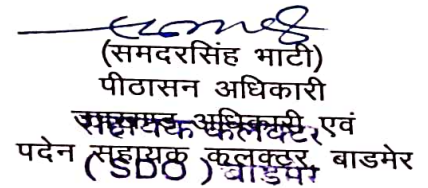 (समदरसिंह भाटी)
पीठासन अधिकारी
उपखण्ड अधिकारी एवं
सहायक कलक्टर
पदेन सहायक कलक्टर, बाडमेर
(SDO) बाडमेर